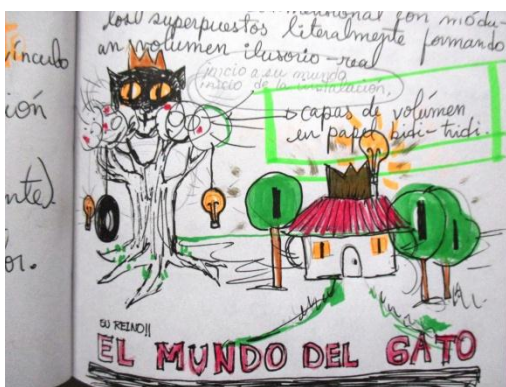 los superpuestos literalmente formando
un volumen ilusorio-real
vínculo
ión
nte).
or.
inicio a su mundo
inicio de la instalación,
capas de volúmen
en papel bidi-tridi.
SU REINO!!
EL MUNDO DEL GATO